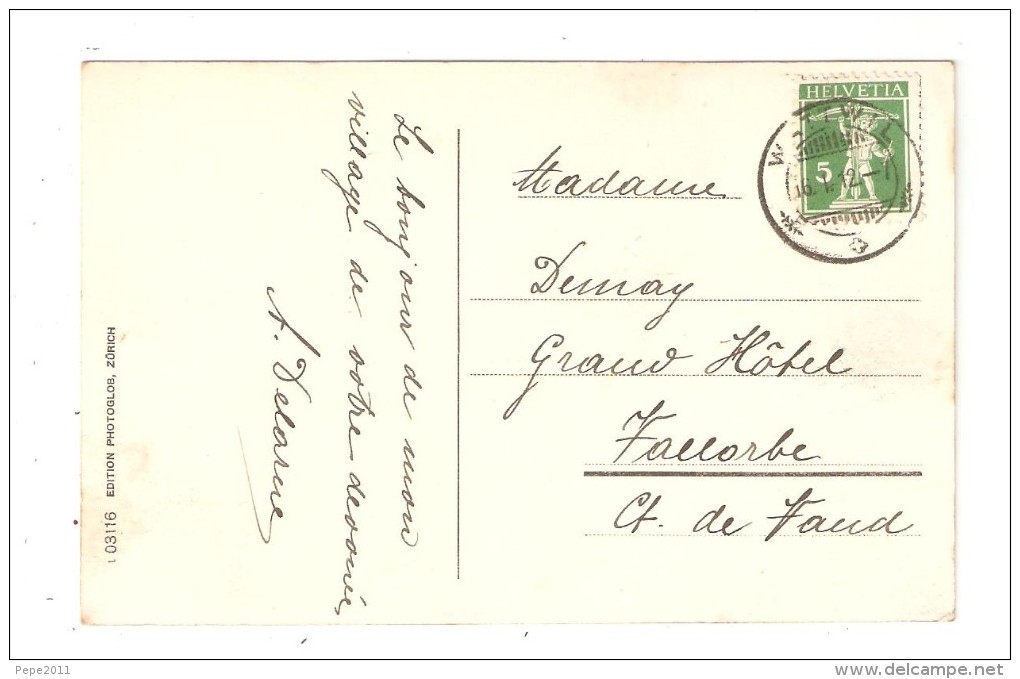 Le bonjour de mon
village de votre devouée,
A. Delarue
ı 03116 EDITION PHOTOGLOB, ZÜRICH
HELVETIA
5
16. I. 12.–
Madame
Demay
Grand Hôtel
Vallorbe
Ct. de Vaud
Pepe2011
www.delcampe.net